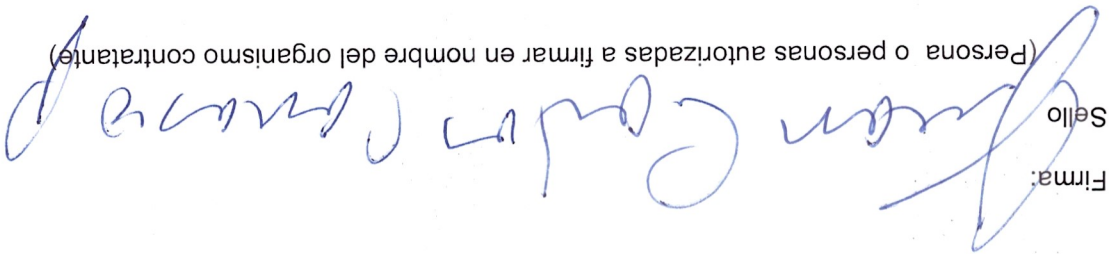 Firma:
Sello
Juan Carlos
(Persona o personas autorizadas a firmar en nombre del organismo contratante)